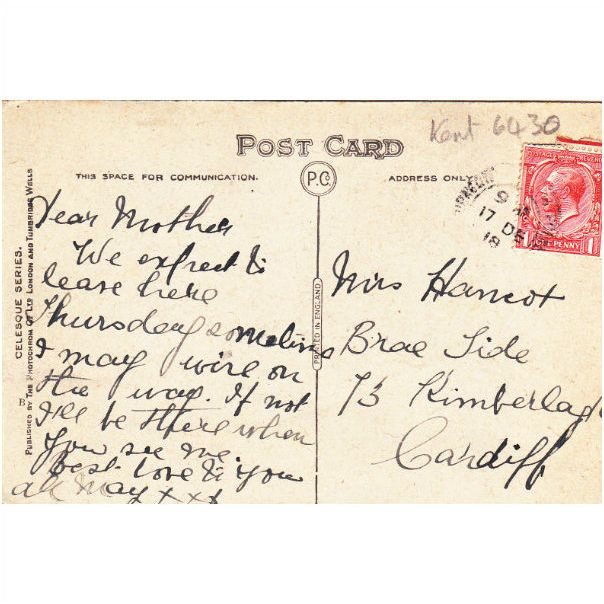 Kent 6430
POST CARD
THIS SPACE FOR COMMUNICATION.
P.C.
ADDRESS ONLY.
Dear Mother
We expect to
leave here
Thursday sometime
I may wire on
the way. If not
I'll be there when
you see me.
Best love to you
all May x x x
Mrs Hancot
Brae Side
73 Kimberla
Cardiff
CELESQUE SERIES.
PUBLISHED BY THE PHOTOCHROM CO LTD LONDON AND TUNBRIDGE WELLS
B
PRINTED IN ENGLAND
9 AM
17 DE
18
POSTAGE REVENUE
1 ONE PENNY 1